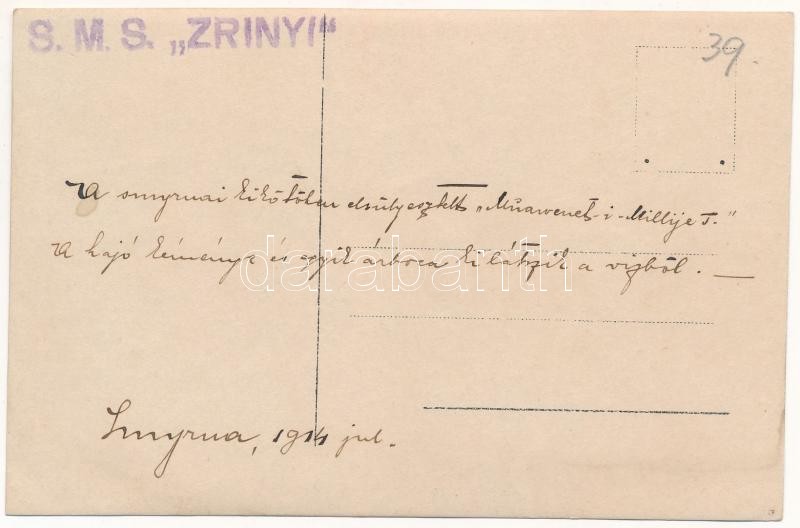 S. M. S. „ZRINYI“
39.
A smyrnai kikötőben elsülyesztett „Muawenet-i-Millije T.”
A hajó kéménye és egyik árboca kilátszik a vizből. —
darabanth
Smyrna, 1914 jul.